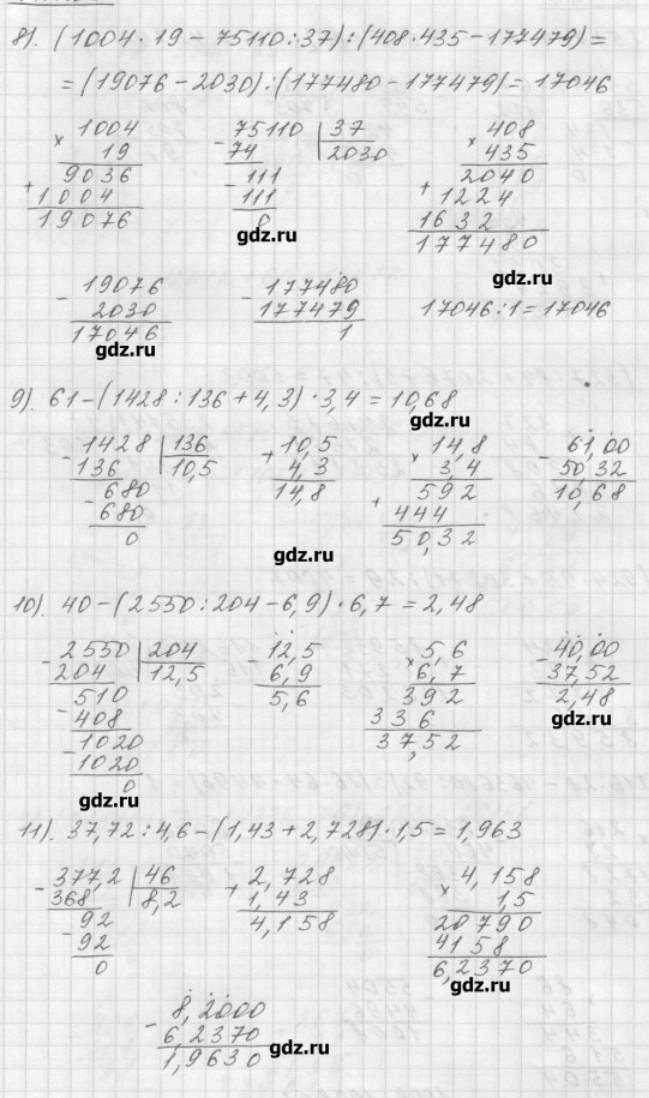 8). (1004·19 − 75110:37):(408·435−177479)=
=(19076−2030):(177480−177479)=17046
× 1004
19
9036
+ 1004
19076
− 75110 | 37
74 | 2030
− 111
111
0
× 408
435
2040
+ 1224
1632
177480
gdz.ru
gdz.ru
− 19076
2030
17046
− 177480
177479
1
17046:1=17046
gdz.ru
9). 61−(1428:136+4,3)·3,4=10,68
gdz.ru
− 1428 | 136
136 | 10,5
− 680
680
0
+ 10,5
4,3
14,8
× 14,8
3,4
592
+ 444
50,32
− 61,00
50,32
10,68
gdz.ru
10). 40−(2550:204−6,9)·6,7=2,48
− 2550 | 204
204 | 12,5
510
− 408
1020
− 1020
0
− 12,5
6,9
5,6
× 5,6
6,7
392
336
37,52
− 40,00
37,52
2,48
gdz.ru
gdz.ru
11). 37,72:4,6−(1,43+2,728)·1,5=1,963
− 377,2 | 46
368 | 8,2
92
− 92
0
+ 2,728
1,43
4,158
× 4,158
1,5
20790
4158
6,2370
gdz.ru
− 8,2000
6,2370
1,9630
gdz.ru